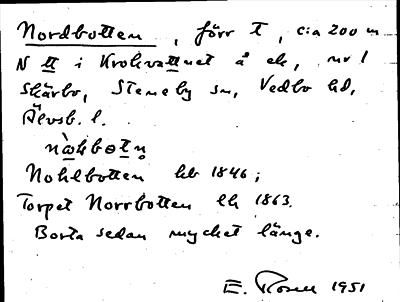 Nordbotten, förr t, cia 200 m
N tt i Krokvattnet å ek, nr 1
Skärbo, Steneby sn, Vedbo hd,
Älvsb. l.
nòkbotn̥
Nohlbotten hb 1846;
Torpet Norrbotten lh 1863.
Borta sedan mycket länge.
E. Rosell 1951